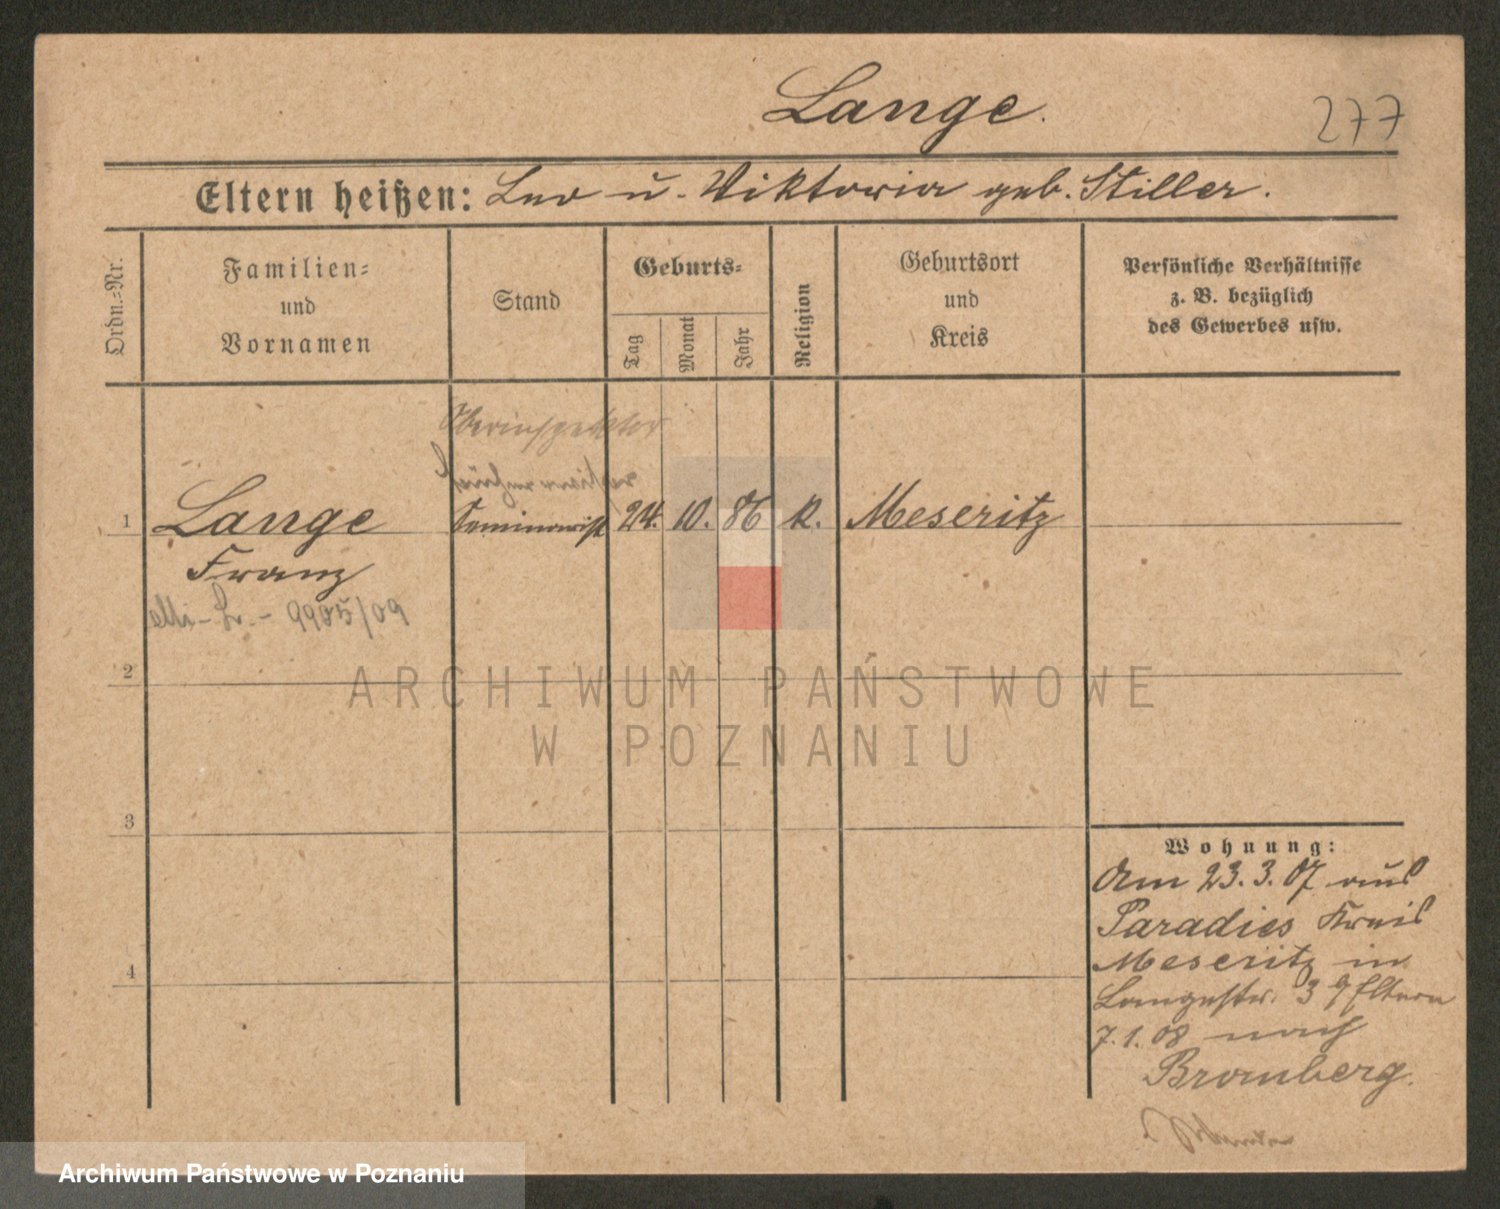 Lange.
277
Eltern heißen: Leo u. Viktoria geb. Stiller.
Ordn.=Nr.
Familien=
und
Vornamen
Stand
Geburts=
Tag
Monat
Jahr
Religion
Geburtsort
und
Kreis
Persönliche Verhältnisse
z. B. bezüglich
des Gewerbes usw.
Oberinspektor
1 Lange Seminarist 24. 10. 86 k. Meseritz
Franz
9985/09
2
ARCHIWUM PAŃSTWOWE
W POZNANIU
3
Wohnung:
Am 23.3.07 aus
Paradies Kreis
Meseritz in
4
Langestr. 3 Eltern
7.1.08 nach
Bromberg.
Archiwum Państwowe w Poznaniu